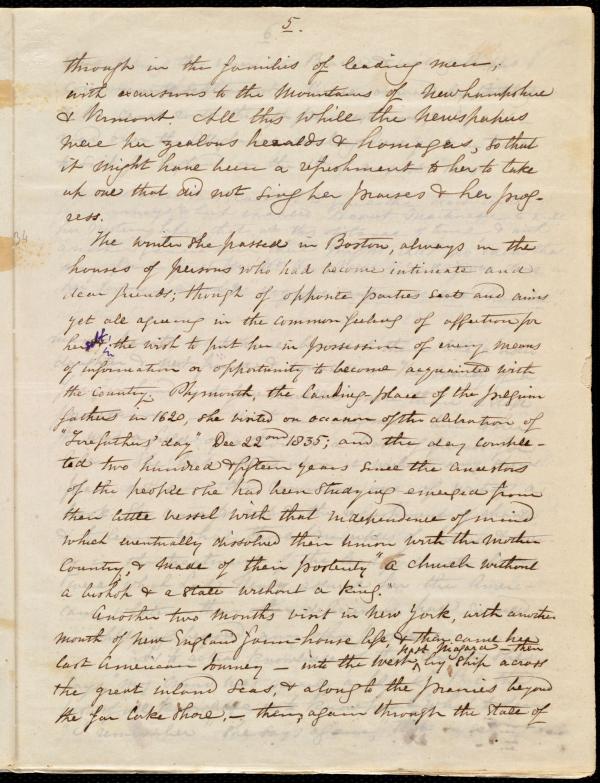 5.
through in the families of leading men,
with excursions to the Mountains of Newhampshire
& Vermont. All this while the Newspapers
were her zealous heralds & homagers, so that
it might have been a refreshment to her to take
up one that did not sing her praises & her prog-
ress.
The winter she passed in Boston, always in the
houses of persons who had become intimate and
dear friends; though of opposite parties sects and aims
yet all agreeing in the common feeling of affection for
her & in the wish to put her in possession of every means
of information or opportunity to become acquainted with
the country. Plymouth, the landing-place of the pilgrim
fathers in 1620, she visited on occasion of the celebration of
"Forefathers' day" Dec 22nd 1835; and the day comple-
ted two hundred & fifteen years since the ancestors
of the people she had been studying emerged from
their little vessel with that independence of mind
which eventually dissolved their union with the Mother
Country, & made of their posterity "a church without
a bishop & a state without a king."
Another two months visit in New York, with another
month of New England farm-house life, & then came her
last American Journey – into the West, by ship across
past Niagara – then
the great inland Seas, & along to the Prairies beyond
the far Lake Shore, – then, again through the State of
34